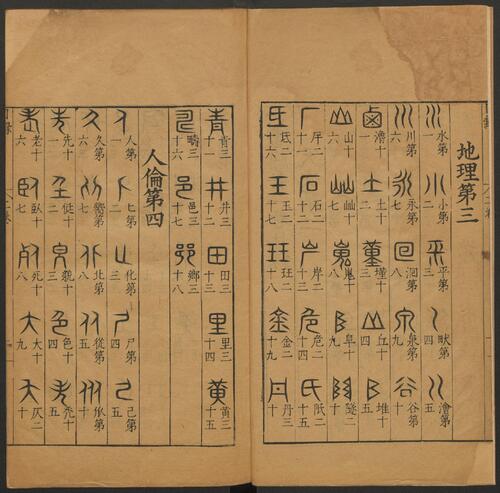 地理第三
水第一 小第二 平第三 畎第四 澮第五
川第六 永第七 洄第八 泉第九 谷第十
土十二 墐十三 丘十四 堆十五
山十六 屾十七 嵬十八 阜十九
厈二十一 石二十二 岸二十三 危二十四 阺二十五
王二十七 玨二十八 金二十九 丹三十
青三十一 井三十二 田三十三 里三十四 黃三十五
疇三十六 邑三十七 鄉三十八
人倫第四
人第一 匕第二 化第三 尸第四 己第五
久第六 北第八 從第九 㐺第十
先十一 貌十三 色十四 禿十五
老十六 臥十七 死十八 大十九 仄二十